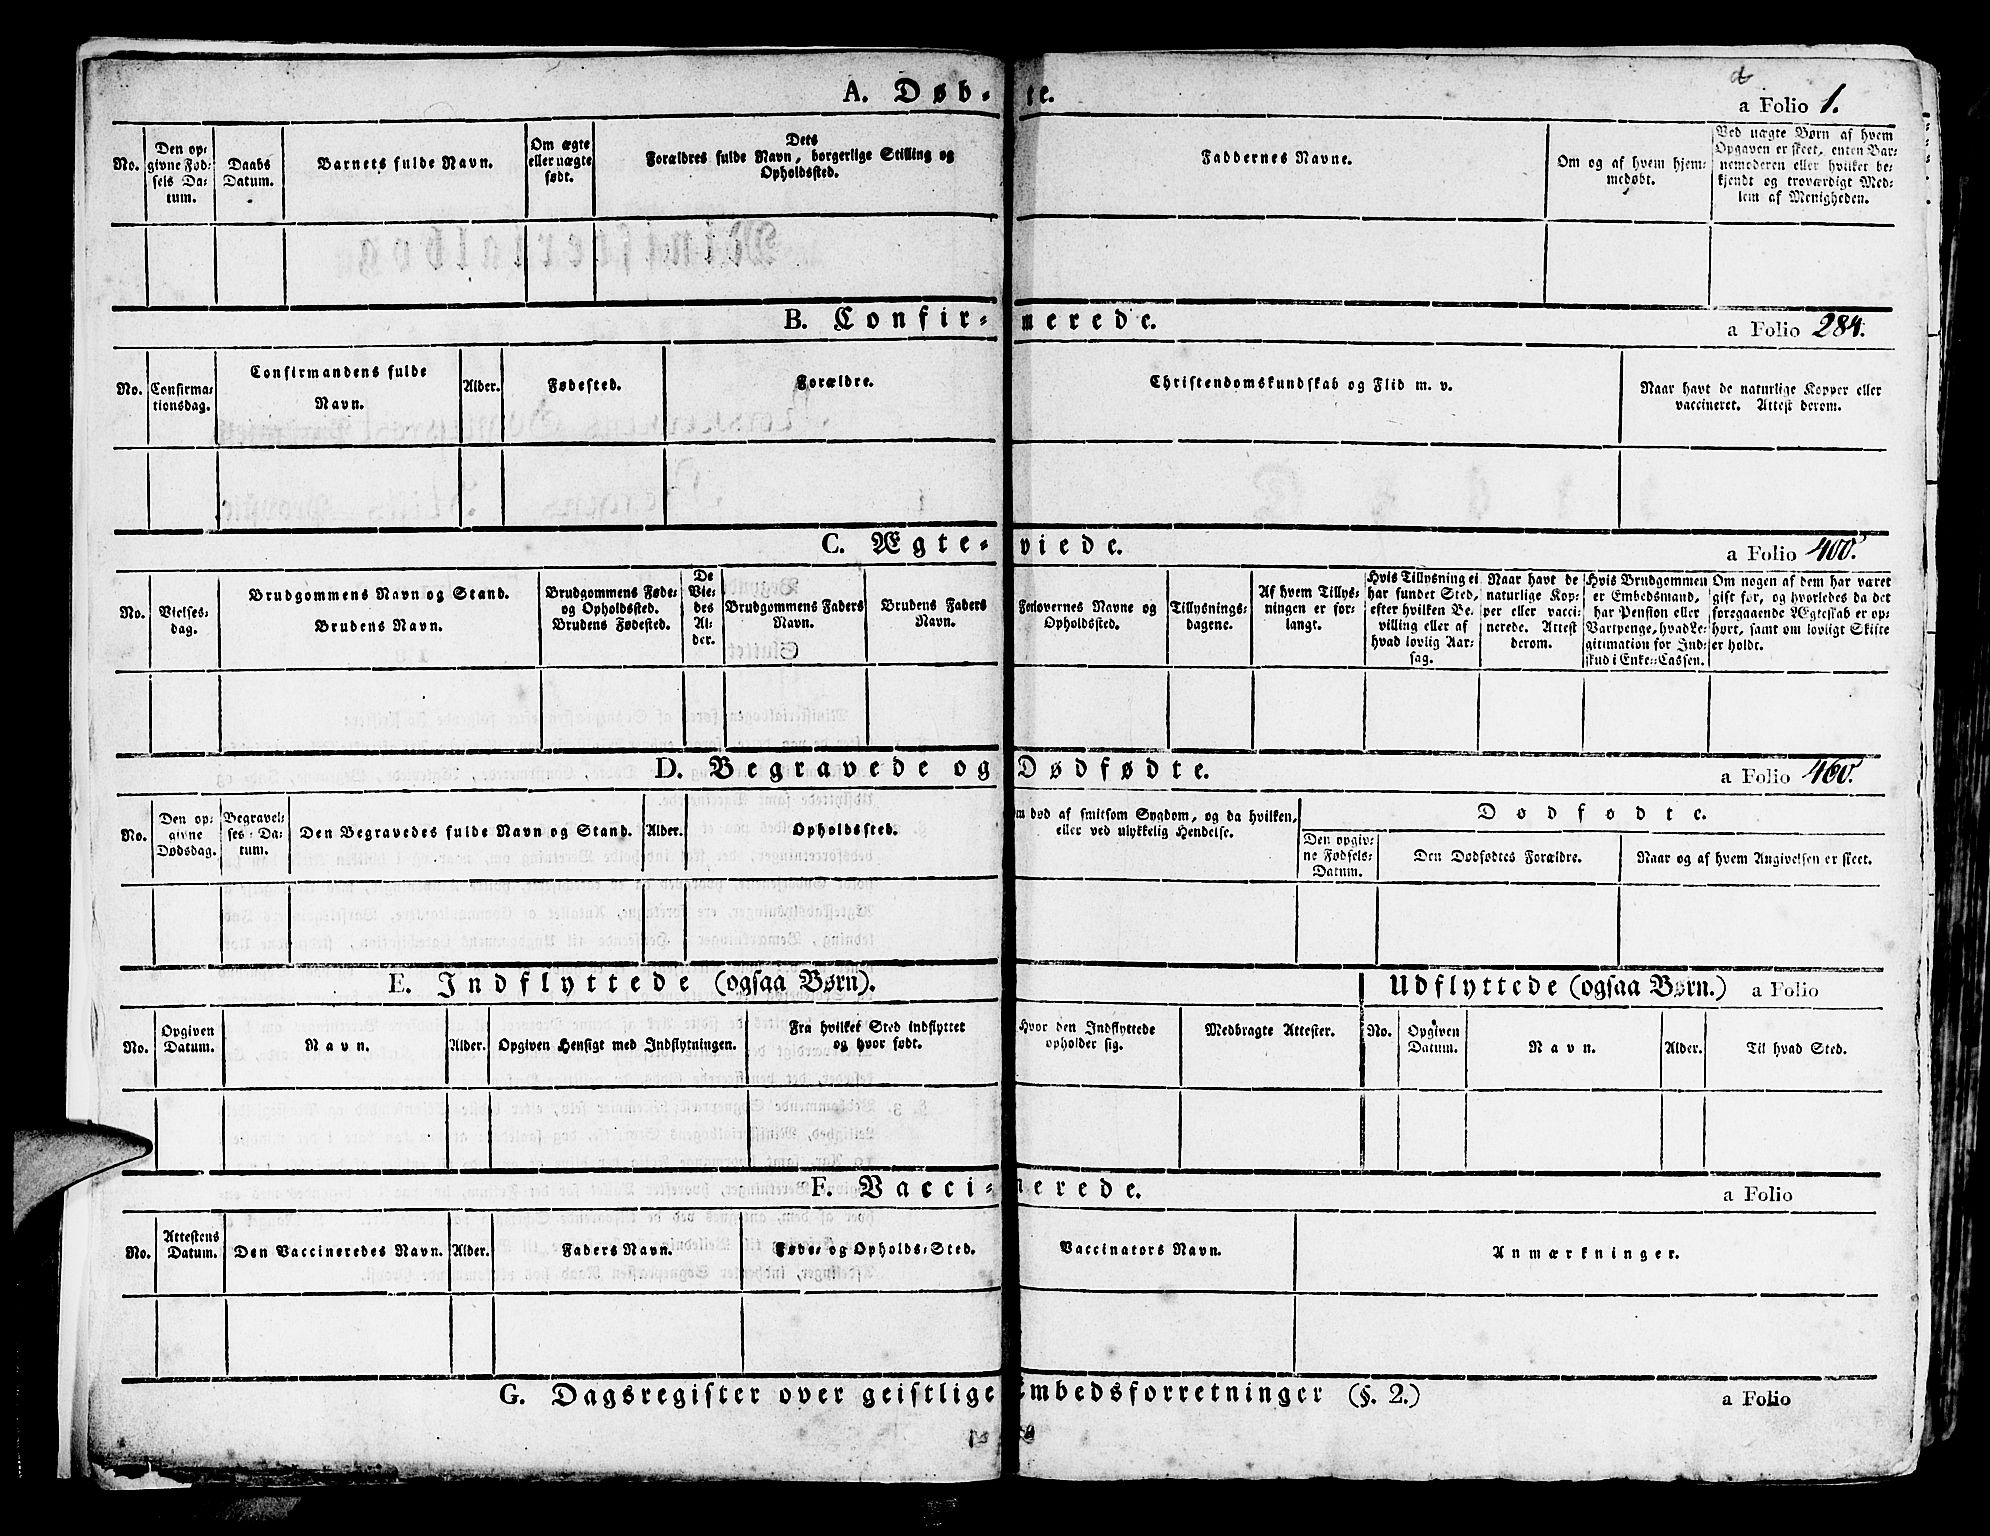 A. Døb-te.
a Folio 1.
No.
Den op-
givne Fød-
sels Da-
tum.
Daabs
Datum.
Barnets fulde Navn.
Om ægte
eller uægte
født.
Dets
Forældres fulde Navn, borgerlige Stilling og
Opholdssted.
Faddernes Navne.
Om og af hvem hjem-
medøbt.
Ved uægte Børn af hvem
Opgaven er skeet, enten Bar-
nemoderen eller hvilket be-
kjendt og troværdigt Med-
lem af Menigheden.
B. Confir-merede.
a Folio 284.
No.
Confirma-
tionsdag.
Confirmandens fulde
Navn.
Alder.
Fødested.
Forældre.
Christendomskundskab og Flid m. v.
Naar havt de naturlige Kopper eller
vaccineret. Attest derom.
C. Ægte-viede.
a Folio 400.
No.
Vielses-
dag.
Brudgommens Navn og Stand.
Brudens Navn.
Brudgommens Føde-
og Opholdssted.
Brudens Fødested.
De
Vie-
des
Al-
der.
Brudgommens Faders
Navn.
Brudens Faders
Navn.
Forlovernes Navne og
Opholdssted.
Tillysnings-
dagene.
Af hvem Tillys-
ningen er for-
langt.
Hvis Tillysning ei
har fundet Sted,
efter hvilken Be-
villing eller af
hvad lovlig Aar-
sag.
Naar havt de
naturlige Kop-
per eller vacci-
nerede. Attest
derom.
Hvis Brudgommen
er Embedsmand,
har Pension eller
Vartpenge, hvad Le-
gitimation for Ind-
skud i Enke-Cassen.
Om nogen af dem har været
gift før, og hvorledes da det
foregaaende Ægteskab er op-
hørt, samt om lovligt Skifte
er holdt.
D. Begravede og Dødfødte.
a Folio 460.
No.
Den op-
givne
Dødsdag.
Begravel-
ses-Da-
tum.
Den Begravedes fulde Navn og Stand.
Alder.
Opholdssted.
m død af smitsom Sygdom, og da hvilken,
eller ved ulykkelig Hendelse.
Dødfødte.
Den opgiv-
ne Fødsels-
Datum.
Den Dødfødtes Forældre.
Naar og af hvem Angivelsen er skeet.
E. Indflyttede (ogsaa Børn).
Udflyttede (ogsaa Børn.)
a Folio
No.
Opgiven
Datum.
Navn.
Alder.
Opgiven Hensigt med Indflytningen.
Fra hvilket Sted indflyttet
og hvor født.
Hvor den Indflyttede
opholder sig.
Medbragte Attester.
No.
Opgiven
Datum.
Navn.
Alder.
Til hvad Sted.
F. Vacci-nerede.
a Folio
No.
Attestens
Datum.
Den Vaccineredes Navn.
Alder.
Faders Navn.
Føde- og Opholds-Sted.
Vaccinators Navn.
Anmærkninger.
G. Dagsregister over geistlige Embedsforretninger (§. 2.)
a Folio